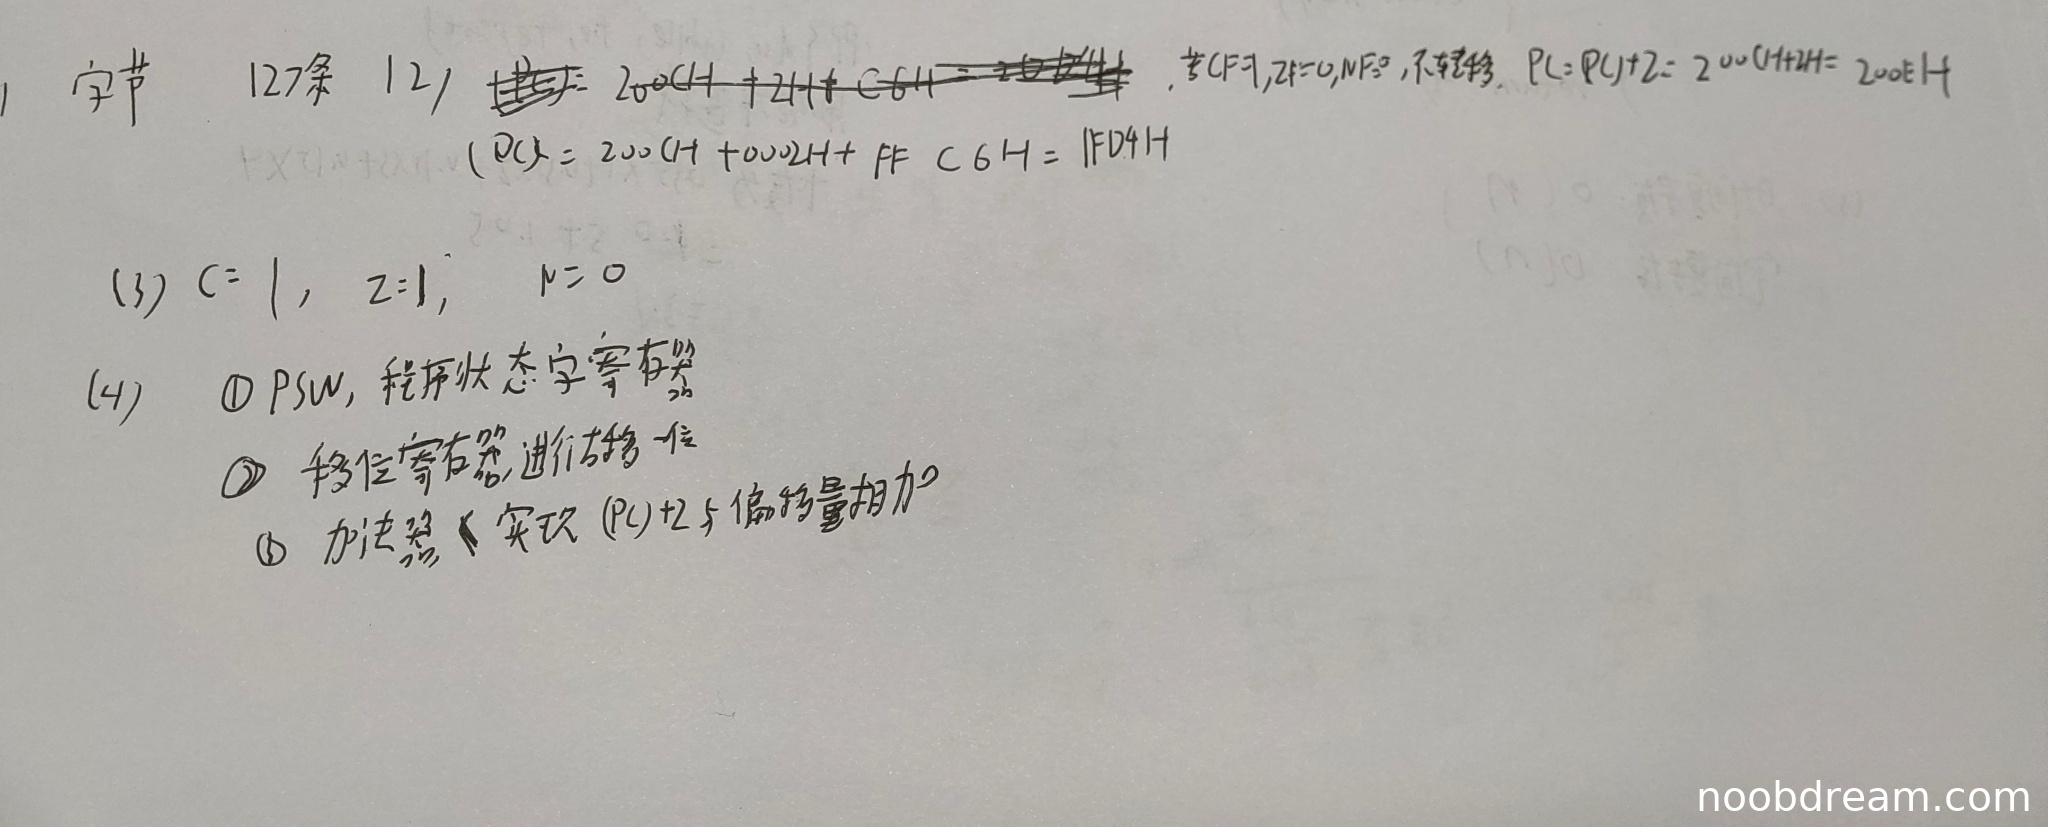 ) 字节 127条 (2) 200CH + 2H + C6H = . 若CF=1,ZF=0,NF=0,不转移. PC=(PC)+2= 200CH+2H= 200EH
(PC)= 200CH +0002H+ FF C6H= 1FD4H
(3) C=1, Z=1, N=0
(4) ①PSW,程序状态字寄存器
② 移位寄存器,进行左移一位
③ 加法器 实现(PC)+2与偏移量相加
noobdream.com